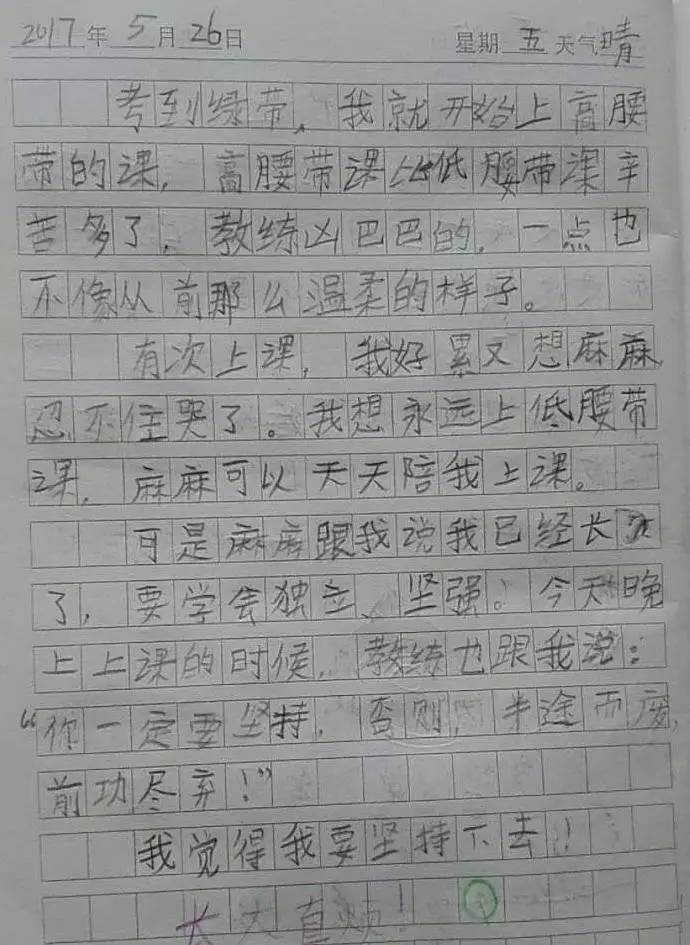 2017年 5月 26日 星期 五 天气 晴
考到绿带，我就开始上高腰
带的课，高腰带课比低腰带课辛
苦多了，教练凶巴巴的，一点也
不像从前那么温柔的样子。
有次上课，我好累又想麻麻，
忍不住哭了。我想永远上低腰带
课，麻麻可以天天陪我上课。
可是麻麻跟我说我已经长大
了，要学会独立、坚强。今天晚
上上课的时候，教练也跟我说：
“你一定要坚持，否则，半途而废，
前功尽弃！”
我觉得我要坚持下去！
长大真烦！